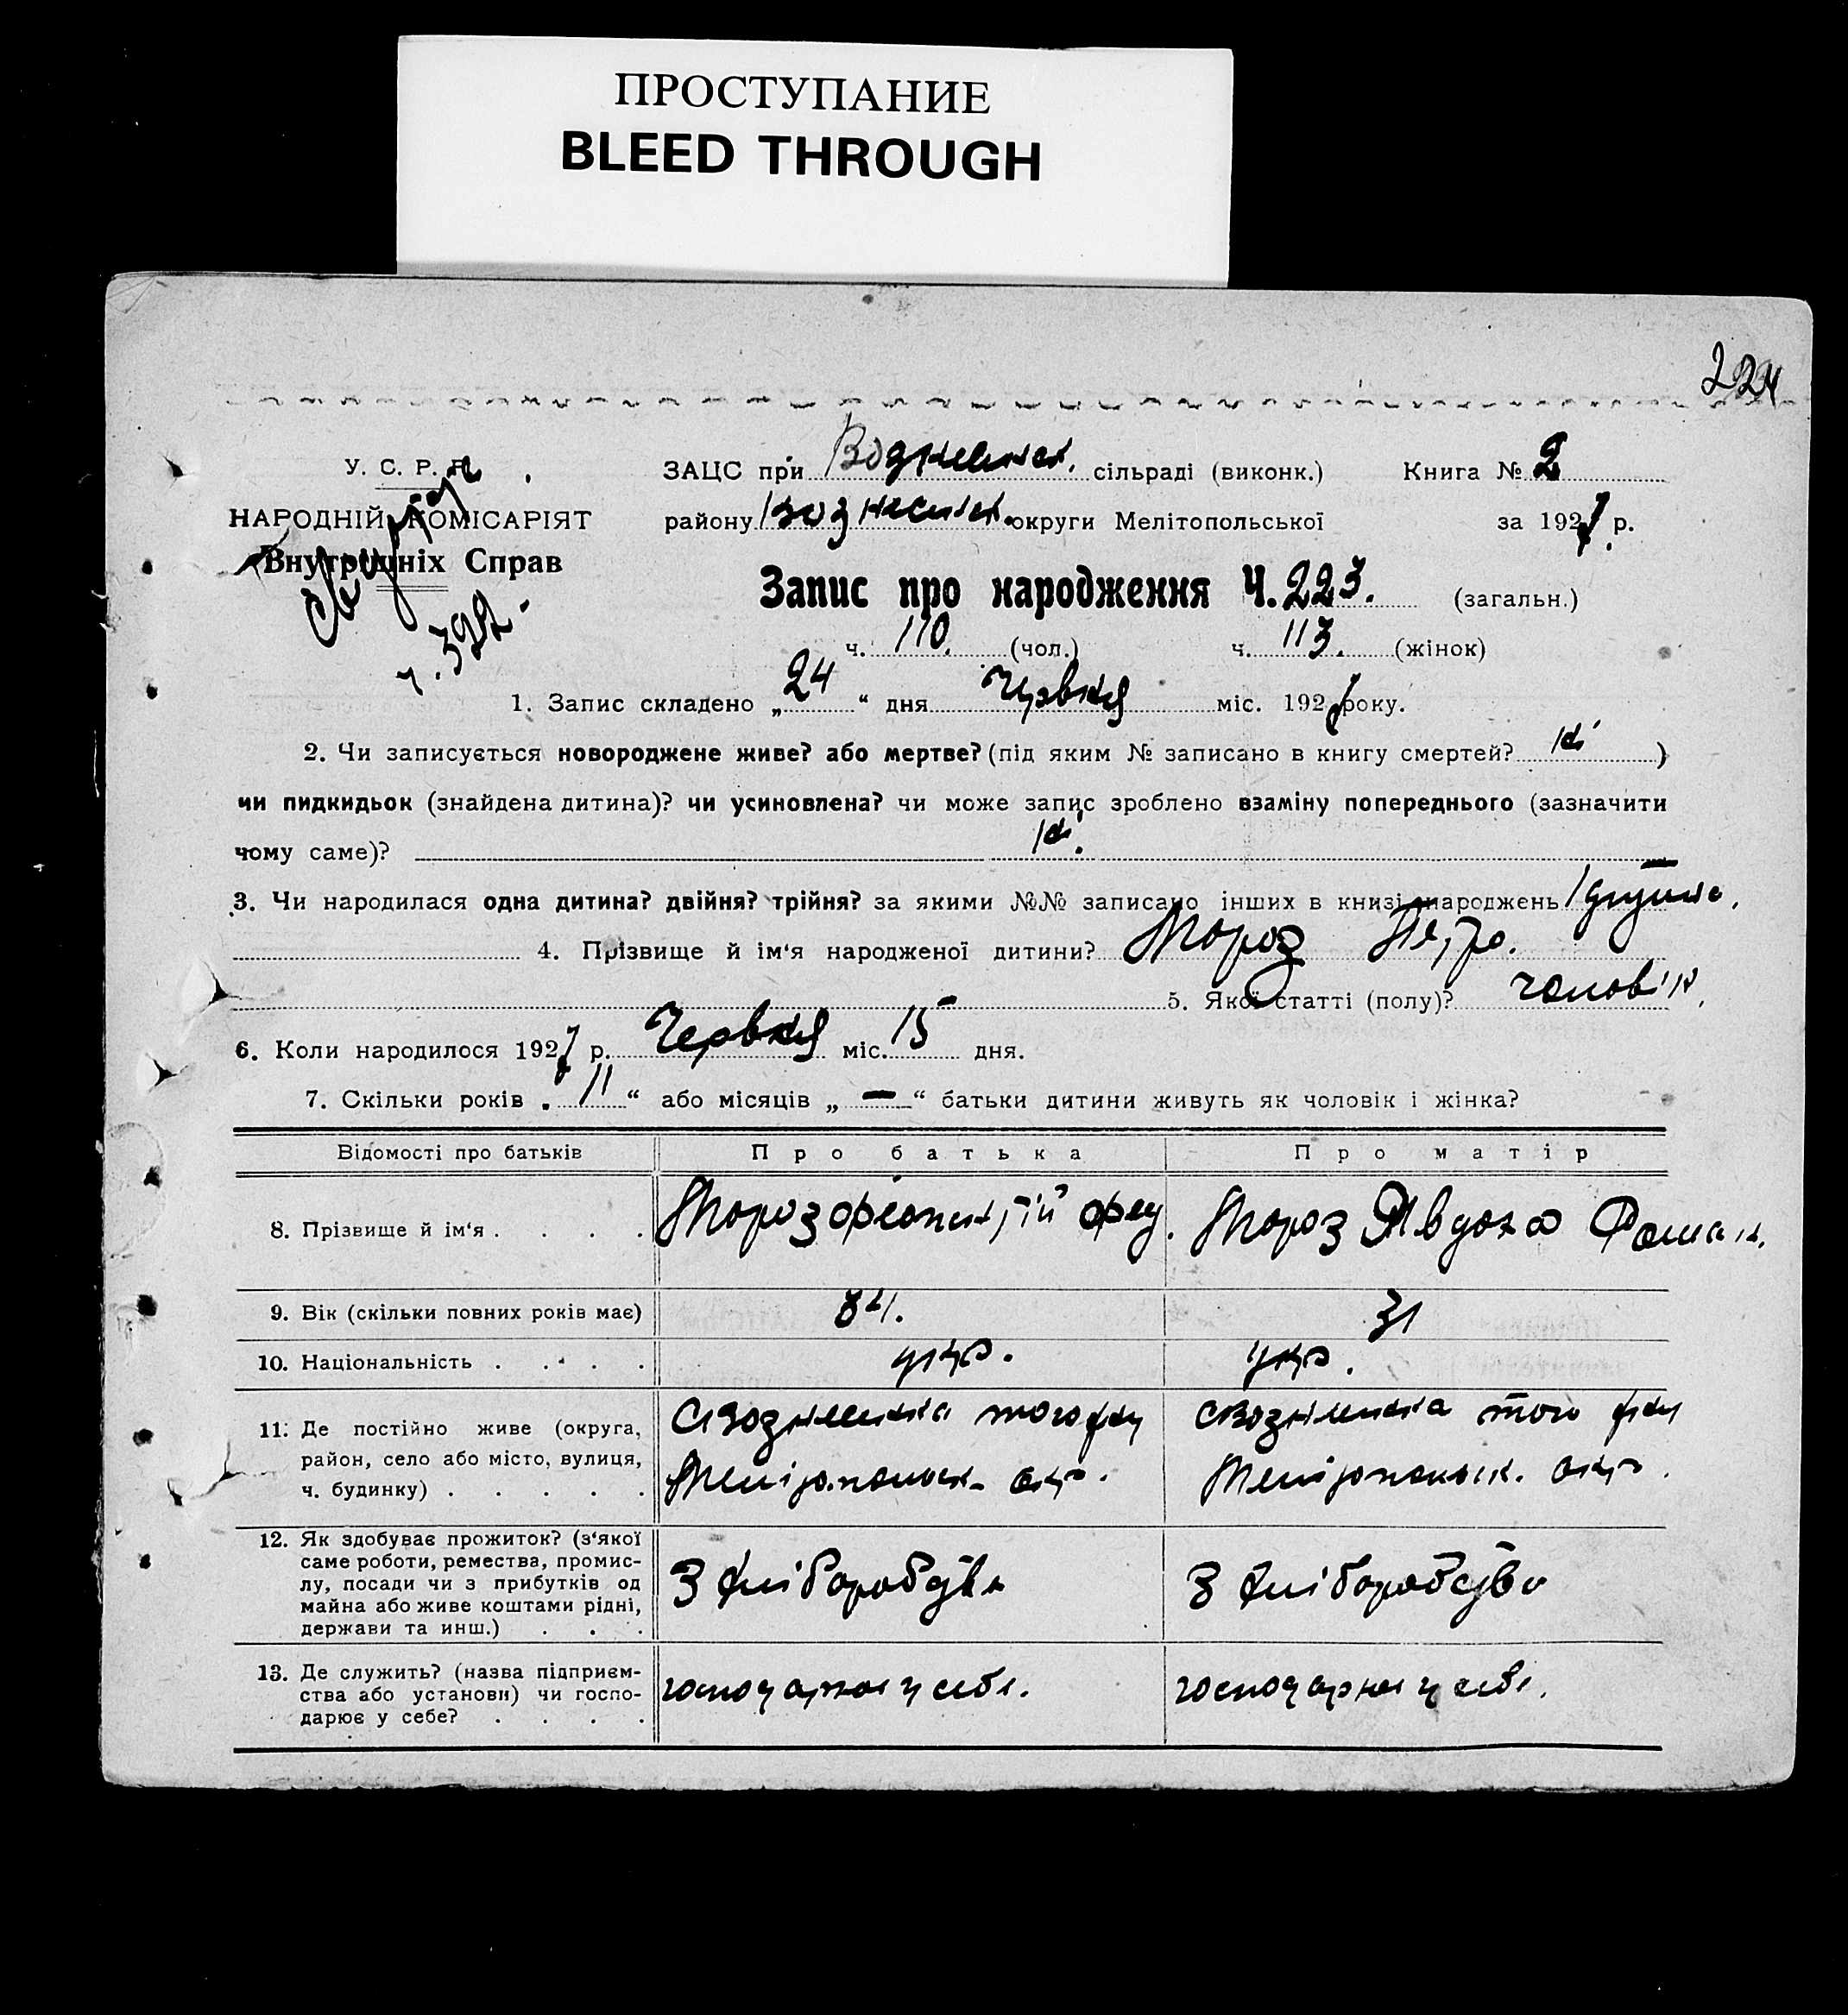 ПРОСТУПАНИЕ
BLEED THROUGH
224
У. С. Р. Р.
НАРОДНІЙ КОМІСАРІЯТ
Внутрішніх Справ
ч. 322.
ЗАЦС при Вознесенск. сільраді (виконк.) Книга № 2
району Вознесенск. округи Мелітопольської за 1927 р.
Запис про народження Ч. 223. (загальн.)
ч. 110. (чол.) ч. 113. (жінок)
1. Запис складено „ 24 “ дня Червня міс. 1927 року.
2. Чи записується новороджене живе? або мертве? (під яким № записано в книгу смертей? )
чи пидкидьок (знайдена дитина)? чи усиновлена? чи може запис зроблено взаміну попереднього (зазначити
чому саме)?
3. Чи народилася одна дитина? двійня? трійня? за якими №№ записано інших в книзі народжень 1 дитина.
4. Прізвище й ім‘я народженої дитини? Мороз Петро.
5. Якої статті (полу)? чоловік.
6. Коли народилося 1927 р. Червня міс. 15 дня.
7. Скільки років „ 11 “ або місяців „ — “ батьки дитини живуть як чоловік і жінка?
Відомості про батьків Про батька Про матір
8. Прізвище й ім‘я . . . . Мороз Феоктистій Фед. Мороз Явдоха Роман.
9. Вік (скільки повних років має) 34. 31
10. Національність . . . . укр. укр.
11. Де постійно живе (округа, с Вознесенка того рну с Вознесенка того рну
район, село або місто, вулиця, Мелітопольск. окр. Мелітопольск. окр.
ч. будинку) . . . . .
12. Як здобуває прожиток? (з‘якої
саме роботи, ремества, промис-
лу, посади чи з прибутків од З хліборобства З хліборобства
майна або живе коштами рідні,
держави та инш.) . . .
13. Де служить? (назва підприєм- господарює у себе. господарює у себе.
ства або установи) чи госпо-
дарює у себе? . . . .